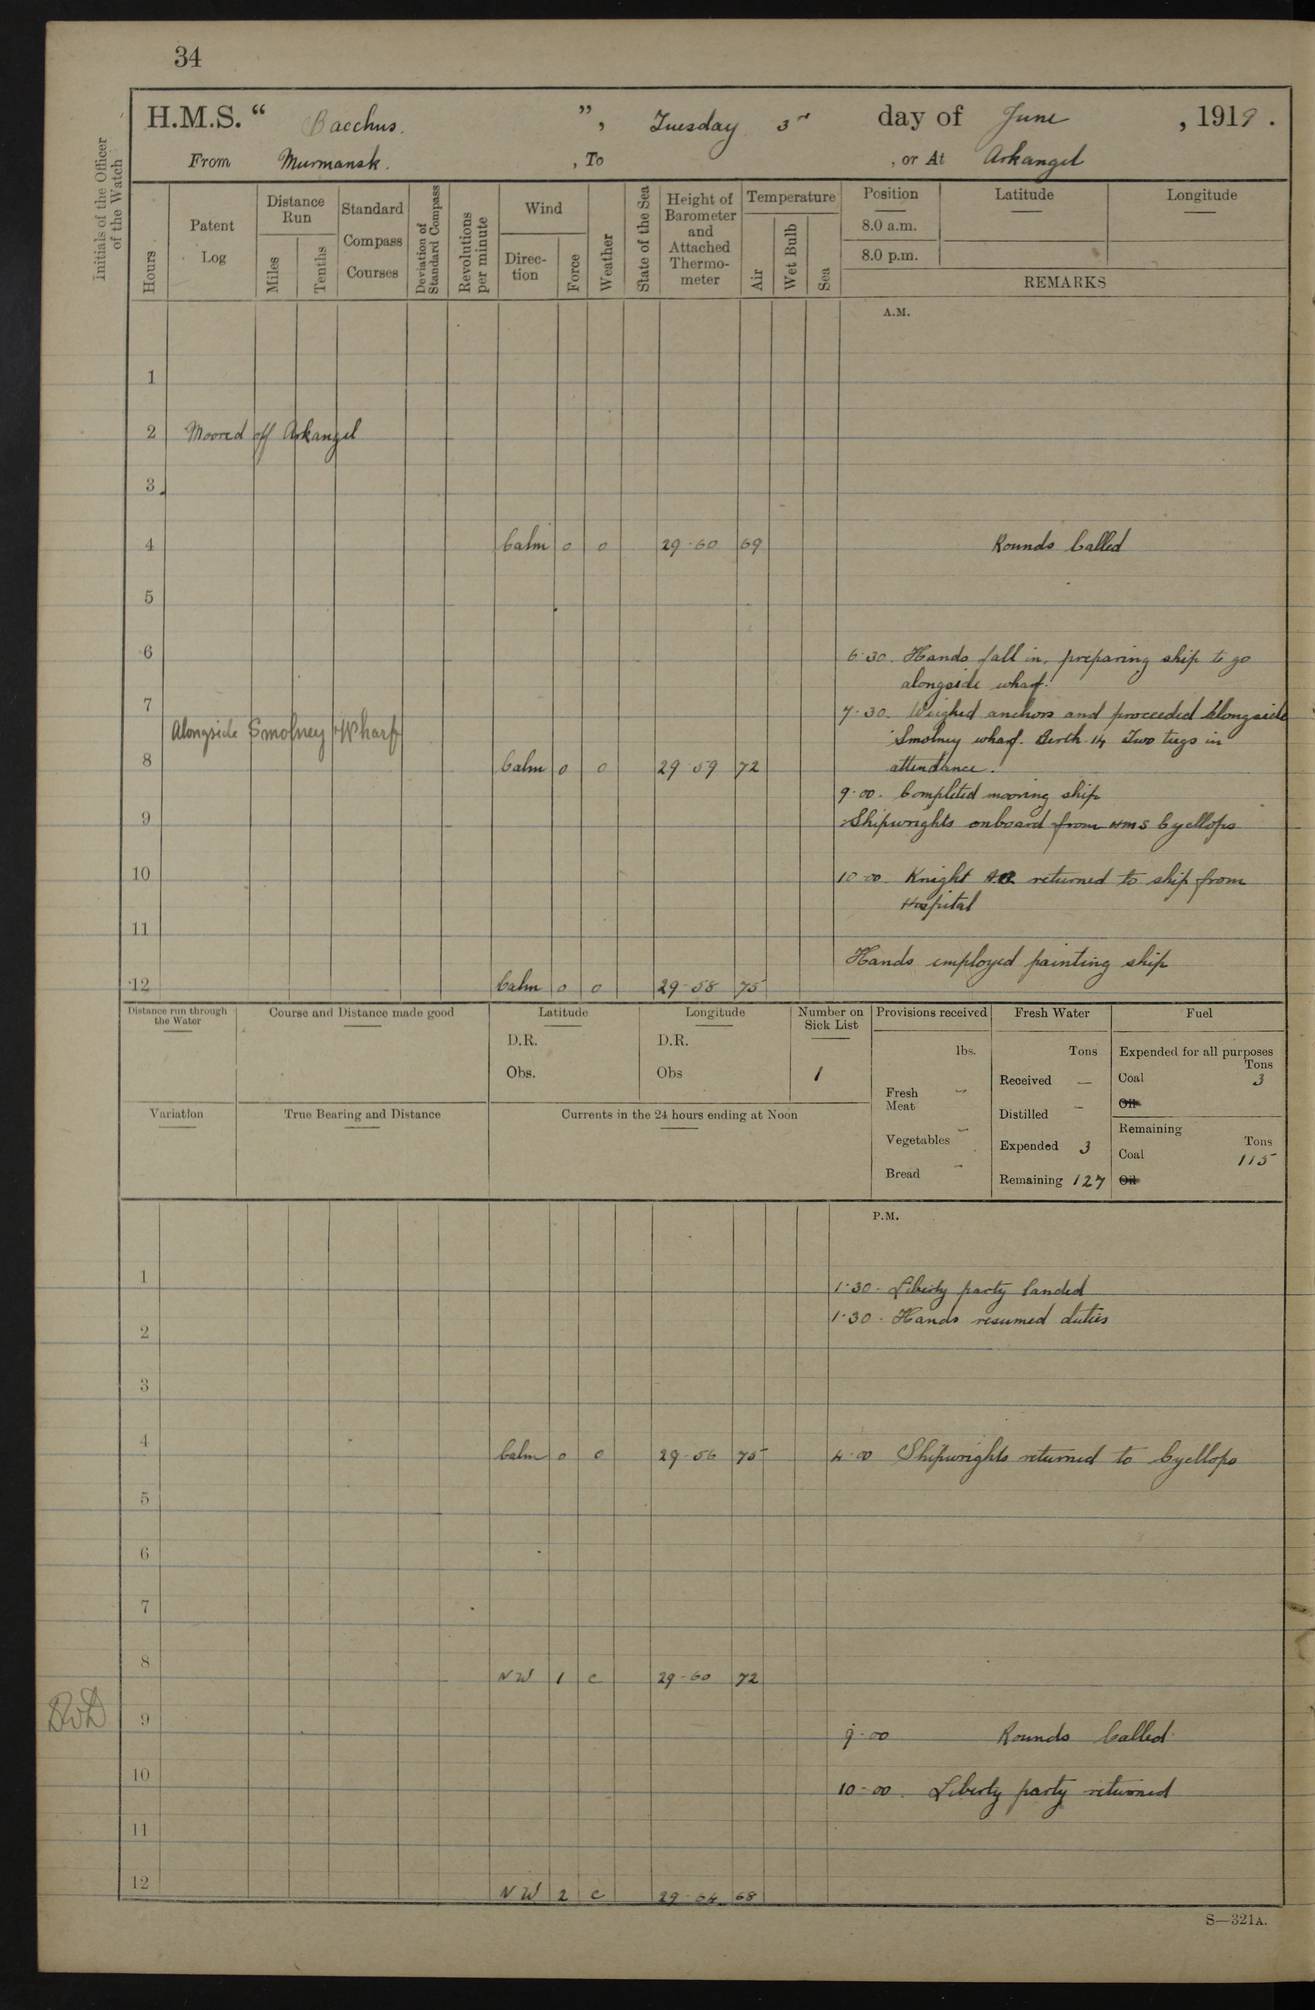 34
H.M.S. “ Bacchus. ”, Tuesday 3rd day of June, 1919.
From Murmansk. , To , or At Arkangel
Initials of the Officer of the Watch
Hours
Patent Log
Distance Run
Miles
Tenths
Standard Compass Courses
Deviation of Standard Compass
Revolutions per minute
Wind
Direction
Force
Weather
State of the Sea
Height of Barometer and Attached Thermometer
Temperature
Air
Wet Bulb
Sea
Position
8.0 a.m.
8.0 p.m.
Latitude
Longitude
REMARKS
A.M.
1
2 Moored off Arkangel
3
4 Calm 0 0 29-60 69 Rounds Called
5
6 6.30. Hands fall in, preparing ship to go
alongside wharf.
7 7.30. Weighed anchors and proceeded alongside
Alongside Smolney Wharf Smolney wharf. Berth 14 Two tugs in
8 Calm 0 0 29-59 72 attendance.
9.00. Completed mooring ship
9 Shipwrights onboard from HMS Cycllops
10 10.00. Knight AB returned to ship from
Hospital
11
Hands employed painting ship
12 Calm 0 0 29-58 75
Distance run through the Water
Course and Distance made good
Latitude
D.R.
Obs.
Longitude
D.R.
Obs
Number on Sick List
1
Provisions received
lbs.
Fresh Meat –
Vegetables –
Bread –
Fresh Water
Tons
Received —
Distilled –
Expended 3
Remaining 127
Fuel
Expended for all purposes
Tons
Coal 3
Oil
Remaining
Tons
Coal 115
Oil
Variation
True Bearing and Distance
Currents in the 24 hours ending at Noon
P.M.
1 1.30. Liberty party landed
1.30. Hands resumed duties
2
3
4 Calm 0 0 29-56 75 4.00 Shipwrights returned to Cycllops
5
6
7
8 NW 1 c 29-60 72
9 9.00 Rounds Called
10 10-00. Liberty party returned
11
12 NW 2 c 29-64 68
S—321A.